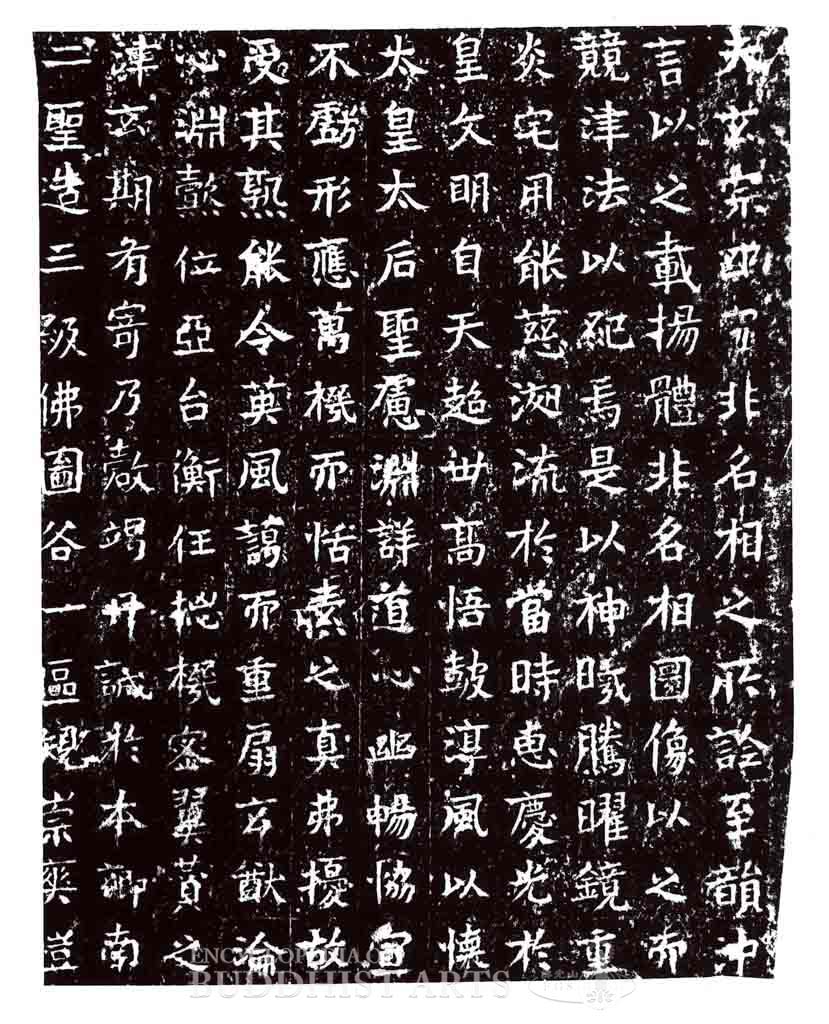 夫玄宗幽寂非名相之所詮至韻沖
言以之載揚體非名相圖像以之而
競津法以焉是以神曦騰曜鏡重
炎宅用能慈流於當時惠慶光於
皇文明自天超世高悟鼓淳風以懷
太皇太后聖慮淵詳道心幽暢協宣
不虧形應萬機而恬素之真弗擾故
受其孰能令英風藹而重扇玄猷淪
心淵懿位亞台衡任摠機密翼贊之
津玄期有寄乃罄竭丹誠於本鄉南
二聖造三級佛圖各一區規崇爽塏
ENCYCLOPEDIA OF
BUDDHIST ARTS